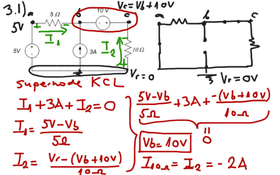 3.1)
a
5Ω
b
10V
Vr=Vb+10V
5V
I₁
5V
3A
I₂
10Ω
Vr=0
a
b
c
3
Vr=0V
Supernode KCL
I₁+3A+I₂=0
I₁ = 5V-Vb / 5Ω
I₂ = Vr-(Vb+10V) / 10Ω
5V-Vb / 5Ω + 3A + -(Vb+10V) / 10Ω
= 0
Vb=10V
I₁₀Ω = I₂ = -2A